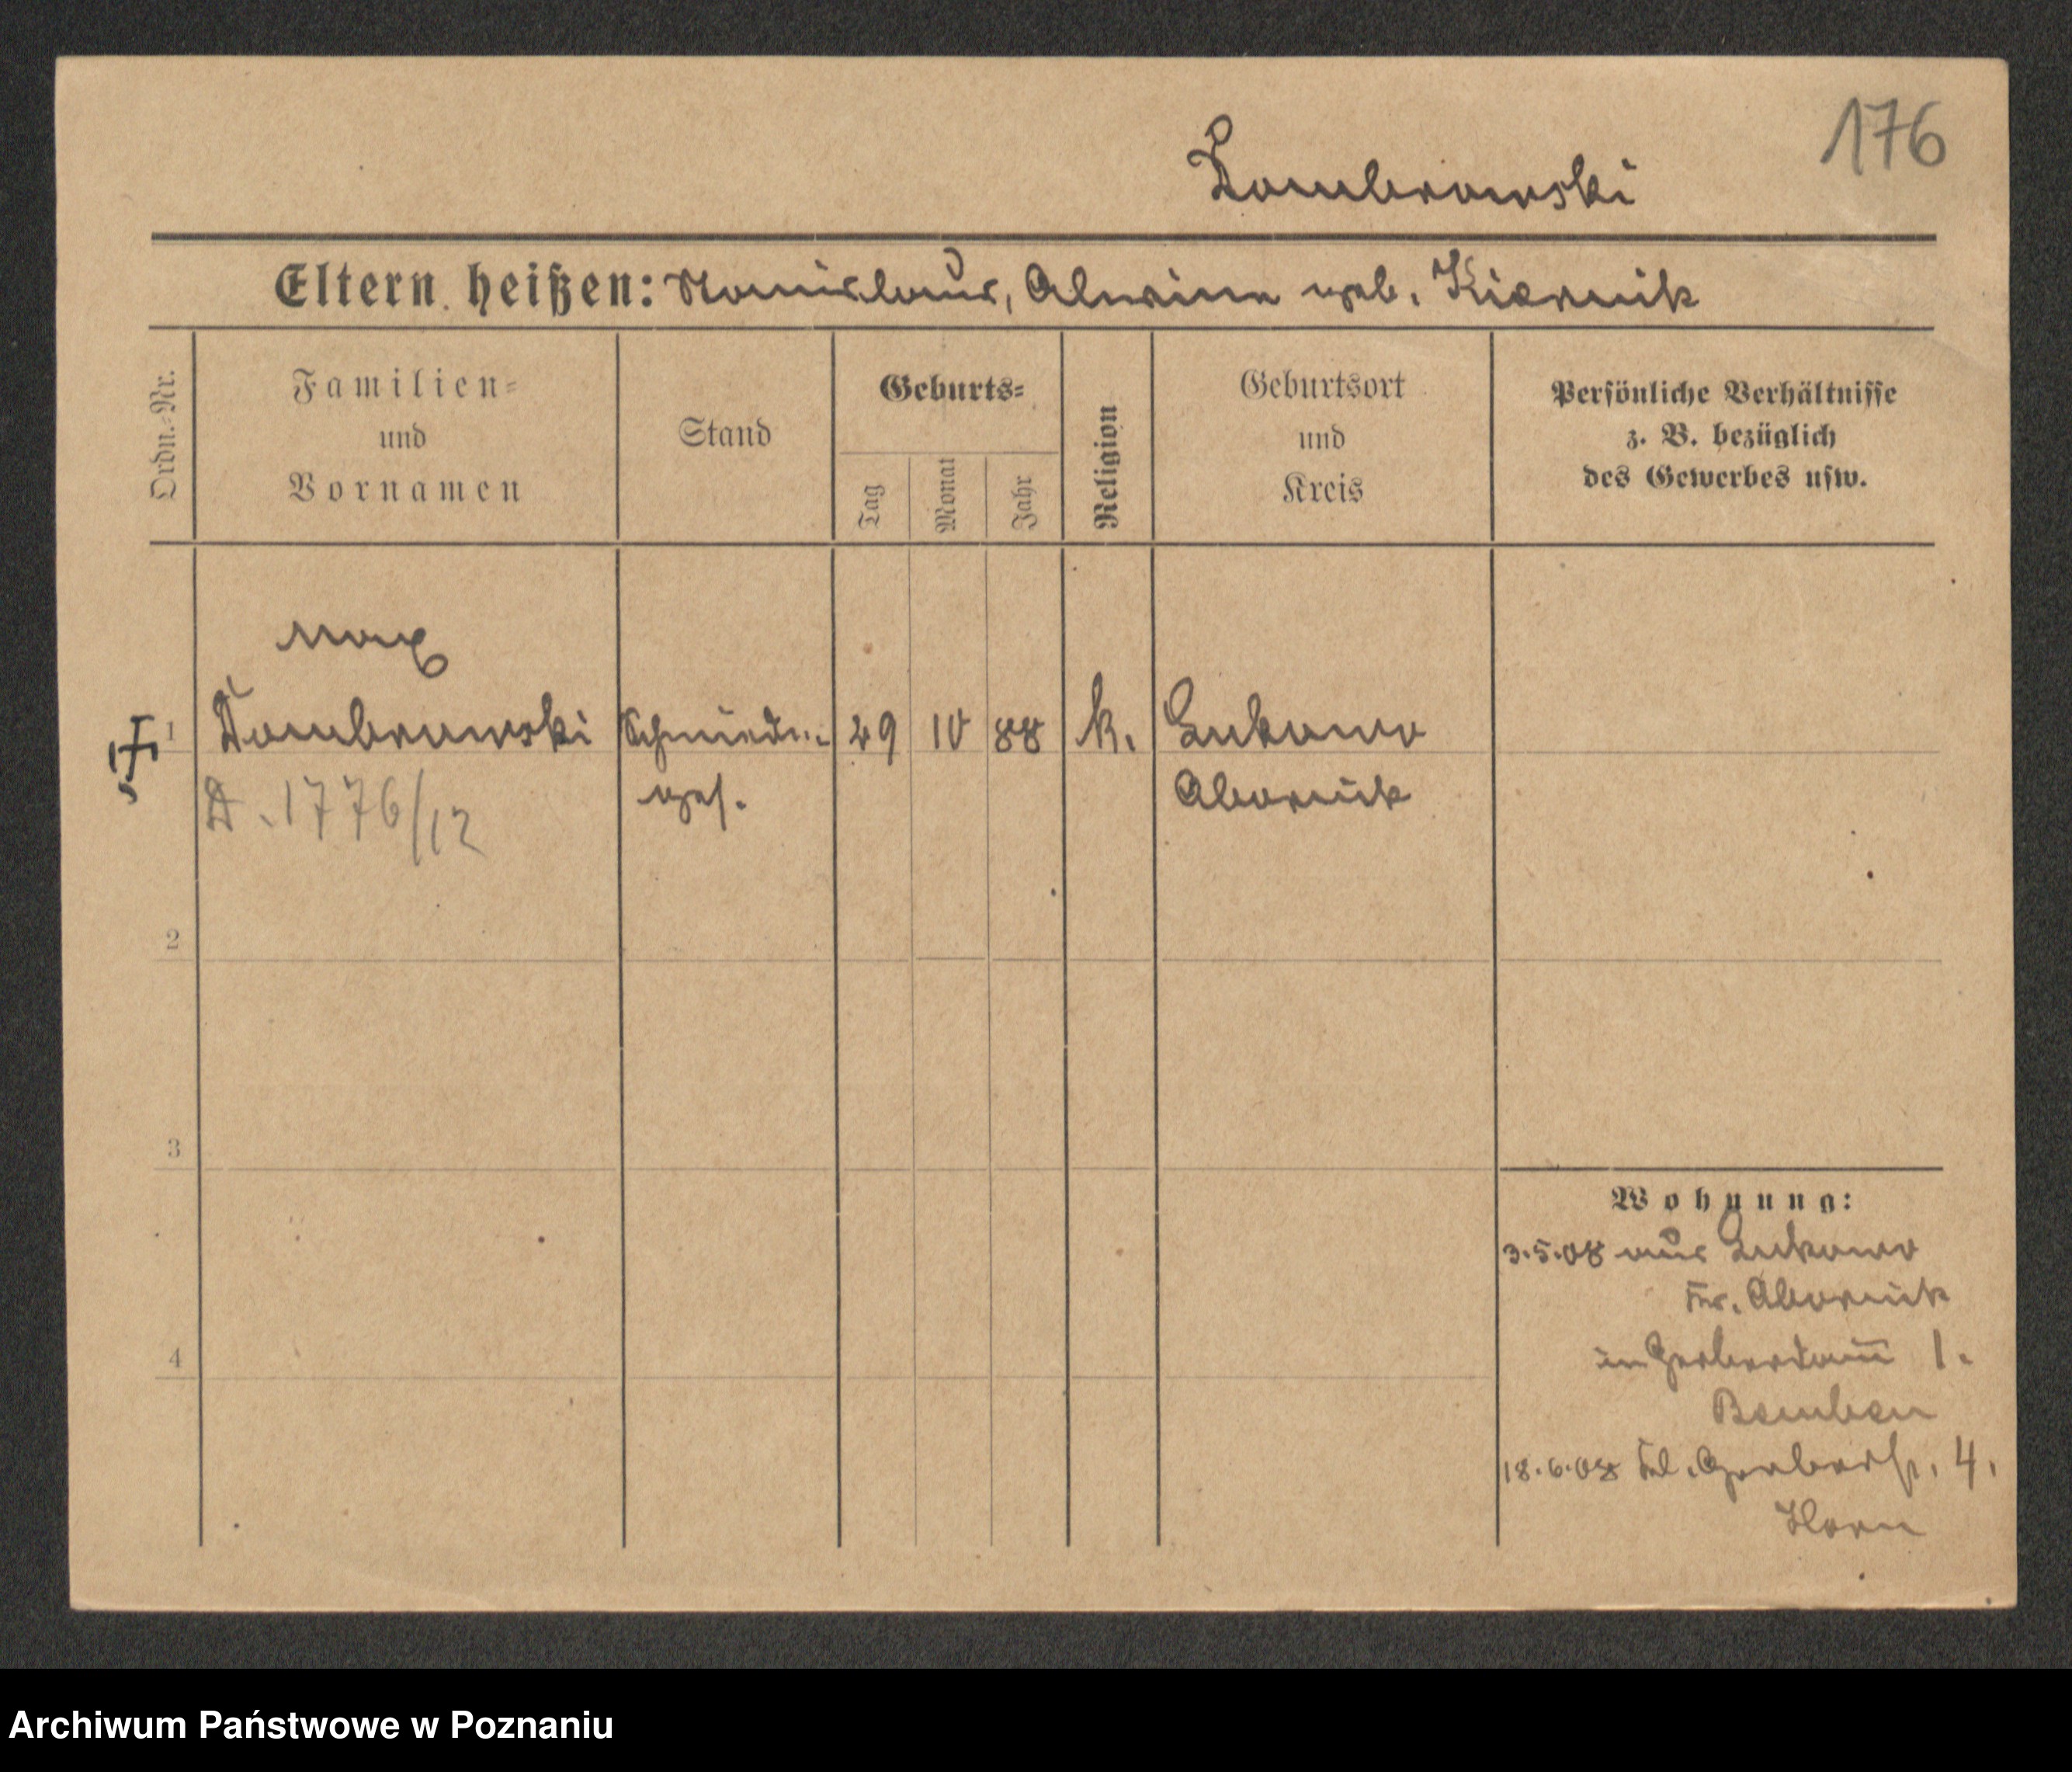 176
Dombrowski
Eltern heißen: Stanislaus, Alwine geb. Kiernik
Ordn.-Nr.
Familien-
und
Vornamen
Stand
Geburts-
Tag
Monat
Jahr
Religion
Geburtsort
und
Kreis
Persönliche Verhältnisse
z. B. bezüglich
des Gewerbes usw.
Max
1 Dombrowski Schmiede- 29 10 88 k. Lukowo
D. 1776/12 ges. Obornik
2
3
4
Wohnung:
3.5.08 aus Lukowo
Kr. Obornik
in Gerberdam̄ 1.
Bemben
18.6.08 Kl. Gerberstr. 4.
Horn
Archiwum Państwowe w Poznaniu